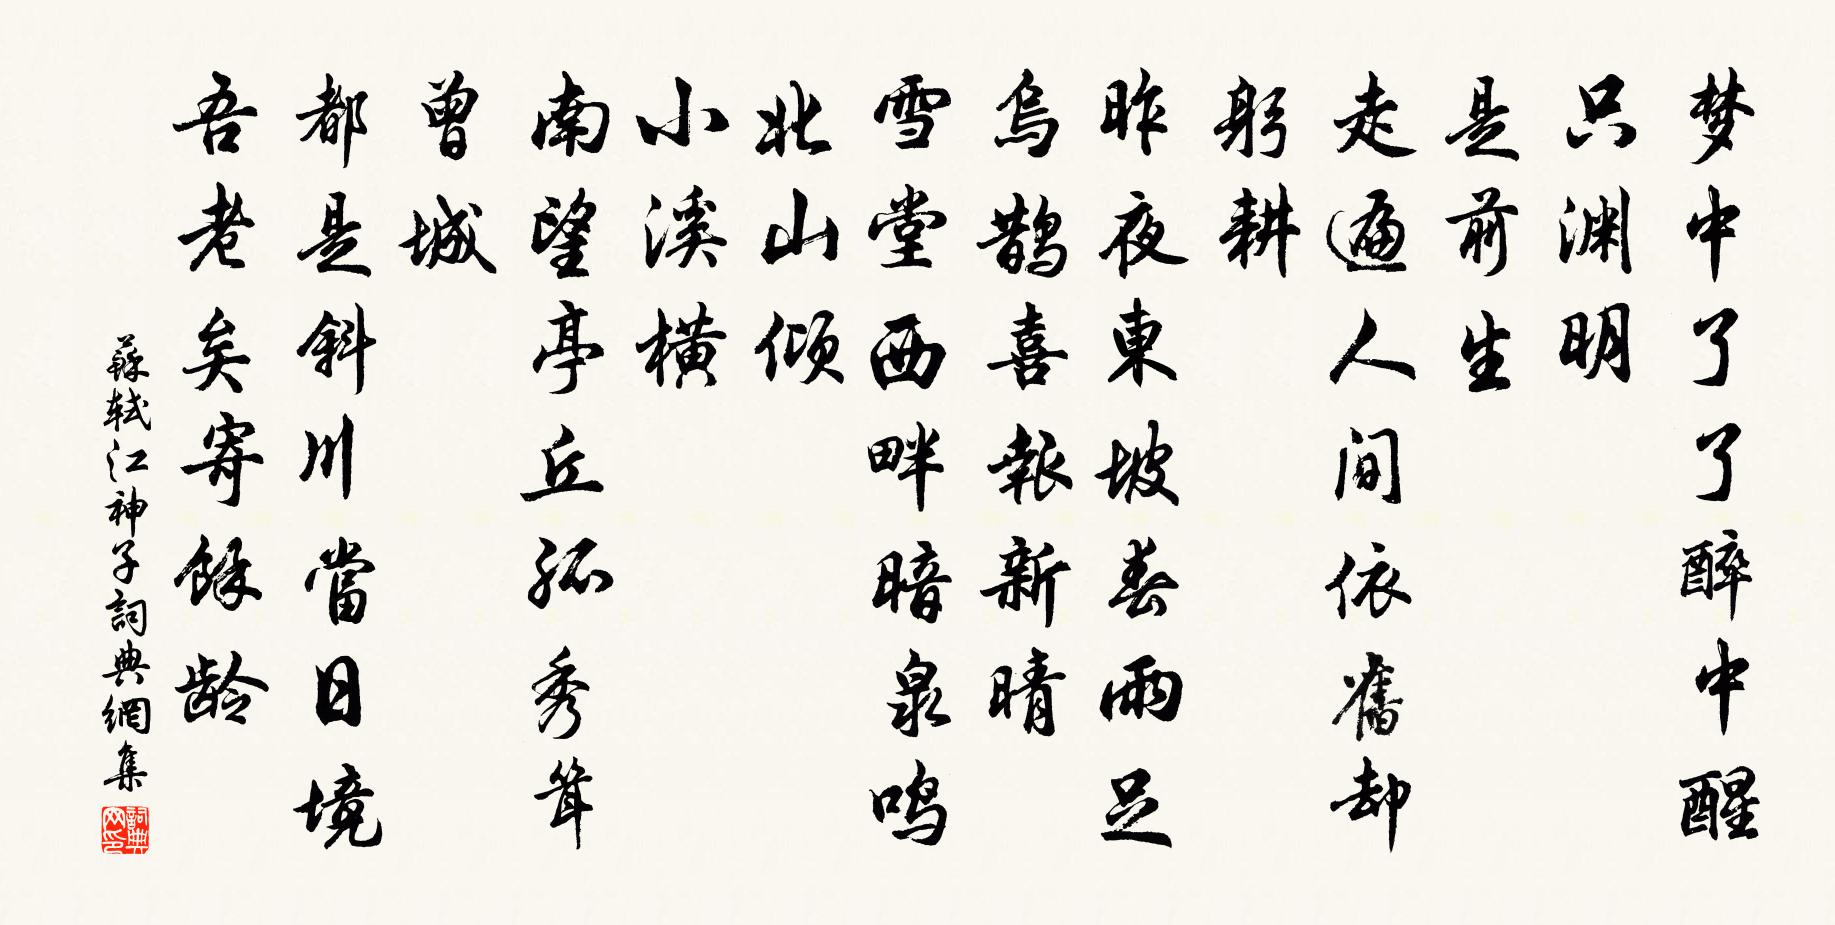 梦中了了醉中醒
只渊明
是前生
走遍人间依舊却
躬耕
昨夜東坡春雨足
烏鹊喜報新晴
雪堂西畔暗泉鸣
北山倾
小溪横
南望亭丘孤秀耸
曾城
都是斜川當日境
吾老矣寄餘龄
蘇轼江神子詞典網集
詞典网印